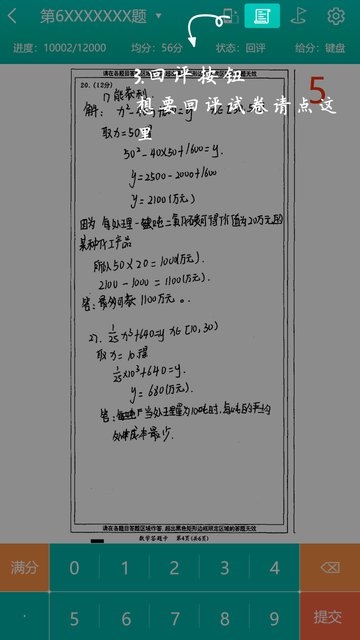 第6XXXXXXX题
进度：10002/12000 均分：56分 状态：回评 给分：键盘
请在各题目答题区域内作答，超出黑色矩形边框限定区域的答题无效
20. (12分)
3.回评按钮
5
1) 能获利
想要回评试卷请点这
解：
里
取x=50
50²-40×50+1600=y
y=2500-2000+1600
y=2100(万元)
因为 每处理一吨二氧化碳可得价值为20万元的
某种化工产品
所以50×20=1000(万元).
2100-1000=1100(万元).
答：最多亏款1100万元。
2). 1/25x³+640=y x∈[10,30)
取x=10得
1/25×10³+640=y.
y=680(万元).
答：当处理量为10吨时，每吨的平均
处理成本最少.
请在各题目答题区域内作答，超出黑色矩形边框限定区域的答题无效
数学答题卡 第4页(共6页)
满分 0 1 2 3 4
. 5 6 7 8 9 提交